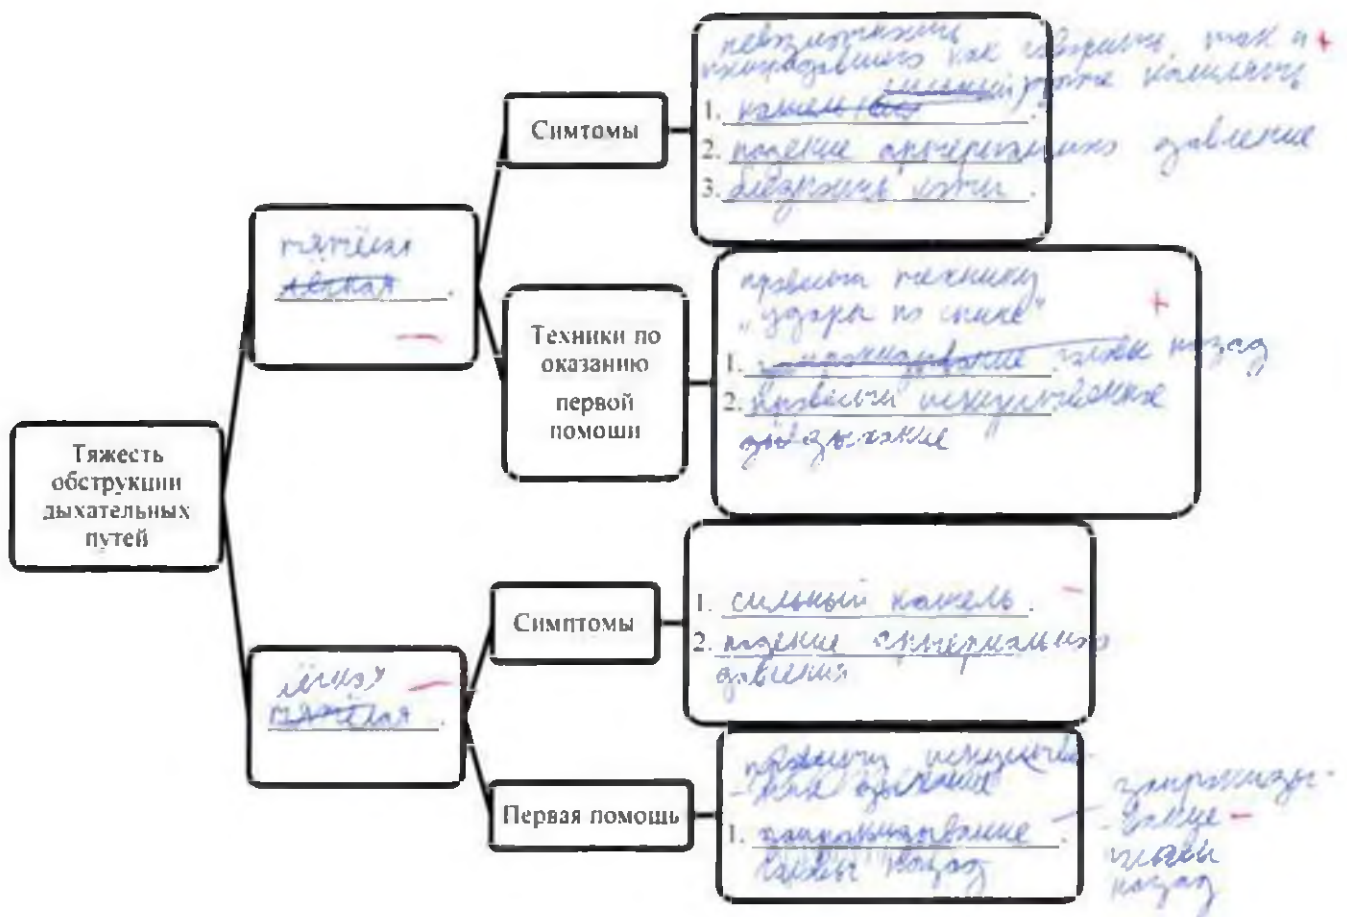 Тяжесть
обструкции
дыхательных
путей
тяжёлая
лёгкая.
—
Симтомы
невозможность
пострадавшего как говорить, так и +
сильный, также кашлять
1. кашель
2. падение артериального давление
3. бледность кожи.
Техники по
оказанию
первой
помоши
провести технику
"удары по спине" +
1. запрокидывание головы назад
2. провести искусственное
дыхание
лёгкая —
тяжёлая.
Симптомы
1. сильный кашель. –
2. падение артериального
давления
Первая помощь
провести искусствен-
ное дыхание
1. запрокидывание.
головы назад
запрокиды-
вание –
головы
назад